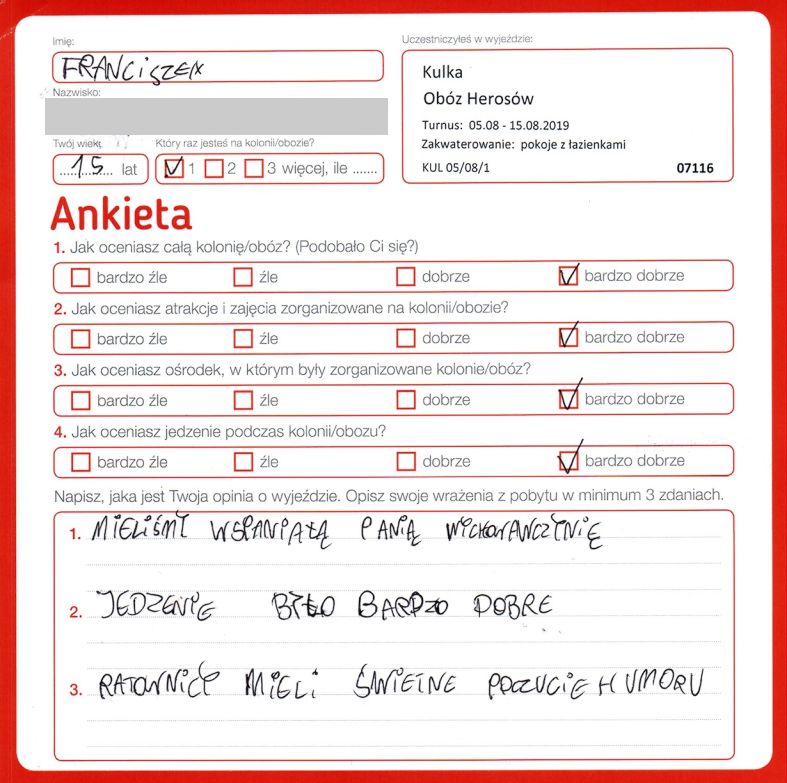 Imię:
FRANCiSZEK
Uczestniczyłeś w wyjeździe:
Kulka
Obóz Herosów
Turnus: 05.08 - 15.08.2019
Zakwaterowanie: pokoje z łazienkami
KUL 05/08/1 07116
Nazwisko:
Twój wiek:
15 lat
Który raz jesteś na kolonii/obozie?
1 2 3 więcej, ile .......
Ankieta
1. Jak oceniasz całą kolonię/obóz? (Podobało Ci się?)
bardzo źle źle dobrze bardzo dobrze
2. Jak oceniasz atrakcje i zajęcia zorganizowane na kolonii/obozie?
bardzo źle źle dobrze bardzo dobrze
3. Jak oceniasz ośrodek, w którym były zorganizowane kolonie/obóz?
bardzo źle źle dobrze bardzo dobrze
4. Jak oceniasz jedzenie podczas kolonii/obozu?
bardzo źle źle dobrze bardzo dobrze
Napisz, jaka jest Twoja opinia o wyjeździe. Opisz swoje wrażenia z pobytu w minimum 3 zdaniach.
1. MIELIŚMY WSPANIAŁĄ PANIĄ WYCHOWAWCZYNIĘ
2. JEDZENIE BYŁO BARDZO DOBRE
3. RATOWNICY MIELI ŚWIETNE POCZUCIE HUMORU